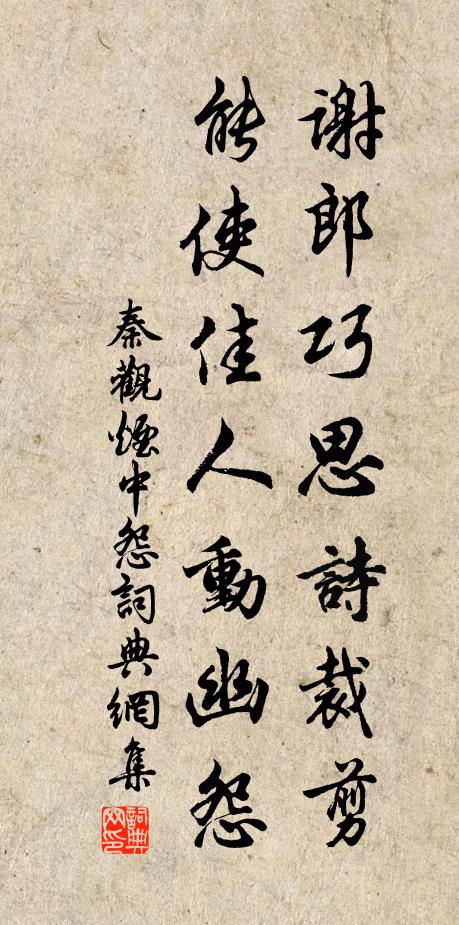 謝郎巧思詩裁剪
能使佳人動幽怨
秦觀煙中怨詞典網集
詞典网印